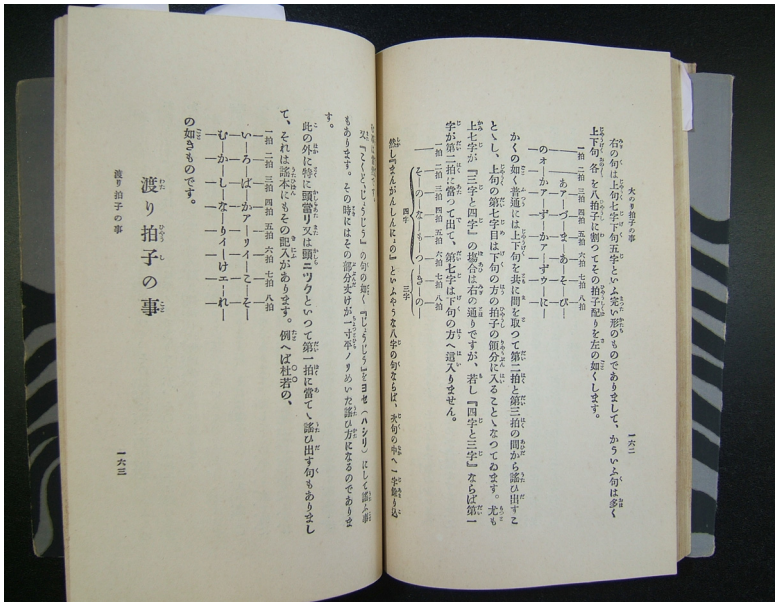 大のり拍子の事
一六二
右の句は上句七字下句五字といふ完い形のものでありまして、かういふ句は多く
上下句各を八拍子に割つてその拍子配りを左の如くします。
一拍 二拍 三拍 四拍 五拍 六拍 七拍 八拍
あァーづーまーあーそーび
のォーかァーずーかァーずゥーにー
かくの如く普通には上下句を共に間を取つて第二拍と第三拍の間から謠ひ出すこ
とゝし、上句の第七字目は下句の方の拍子の領分に入ることゝなつてゐます。尤も
上七字が『三字と四字』の塲合は右の通りですが、若し『四字と三字』ならば第一
字が第二拍に當つて出て、第七字は下句の方へ這入りません。
一拍 二拍 三拍 四拍 五拍 六拍 七拍 八拍
そーの なーもーつーきーの
四字 三字
然し『まんがんしんによの』といふやうな八字の句ならば、次句の中へ一字餘り込
又『こくどじょうじう』の句の如く『じょうじう』をヨセ（ハシリ）にして謠ふ事
もあります。その時にはその部分丈けが一寸平ノリめいた謠ひ方になるのでありま
す。
此の外に特に頭當リ又は頭ニツクといつて第一拍に當てゝ謠ひ出す句もありまし
て、それは謠本にもその記入があります。例へば杜若の、
一拍 二拍 三拍 四拍 五拍 六拍 七拍 八拍
いーろーばーかァーリィーこーそー
むーかーしーなーりィーけェーれー
の如きものです。
渡り拍子の事
渡り拍子の事
一六三